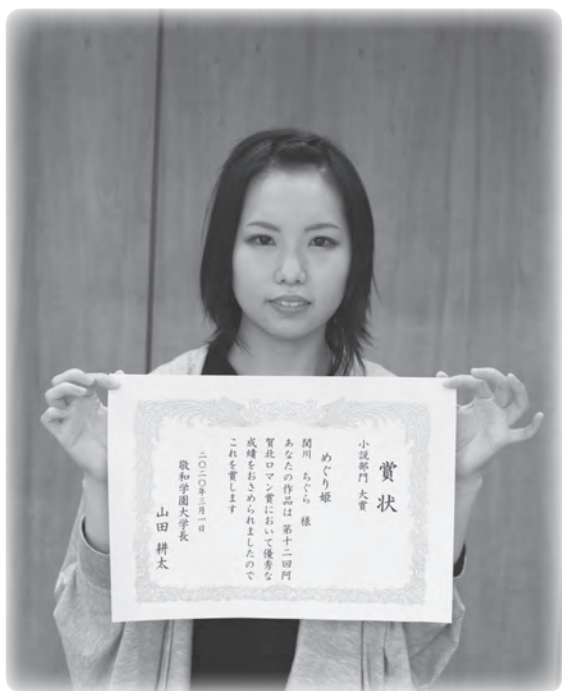 賞状
小説部門 大賞
めぐり姫
関川 ちぐら 様
あなたの作品は 第十二回阿
賀北ロマン賞において優秀な
成績をおさめられましたので
これを賞します
二〇二〇年三月一日
敬和学園大学長
山田 耕太